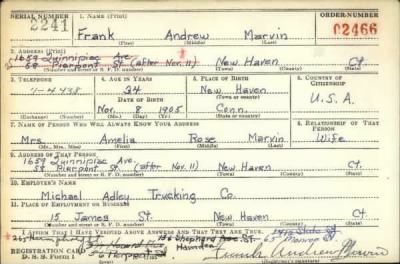 SERIAL NUMBER 1. NAME (Print) ORDER NUMBER
2241 Frank Andrew Marvin 02466
(First) (Middle) (Last)
2. ADDRESS (Print)
1659 Quinnipiac Ave.
59 Pierpont St. (after Nov. 11) New Haven Ct.
(Number and street or R. F. D. number) (Town) (County) (State)
3. TELEPHONE 4. AGE IN YEARS 5. PLACE OF BIRTH 6. COUNTRY OF CITIZENSHIP
4-4498 34 New Haven
DATE OF BIRTH (Town or county) U.S.A.
Nov. 8 1905 Conn.
(Mo.) (Day) (Yr.) (State or country)
7. NAME OF PERSON WHO WILL ALWAYS KNOW YOUR ADDRESS 8. RELATIONSHIP OF THAT PERSON
Mrs. Amelia Rose Marvin Wife
(Mr., Mrs., Miss) (First) (Middle) (Last)
9. ADDRESS OF THAT PERSON
1659 Quinnipiac Ave.
59 Pierpont St. (after Nov. 11) New Haven Ct.
(Number and street or R. F. D. number) (Town) (County) (State)
10. EMPLOYER'S NAME
Michael Adley Trucking Co.
11. PLACE OF EMPLOYMENT OR BUSINESS
15 James St. New Haven Ct.
(Number and street or R. F. D. number) (Town) (County) (State)
I AFFIRM THAT I HAVE VERIFIED ABOVE ANSWERS AND THAT THEY ARE TRUE.
Howard Ave. Shepherd Ave. State St.
Hamden
REGISTRATION CARD Frank Andrew Marvin
D. S. S. FORM 1